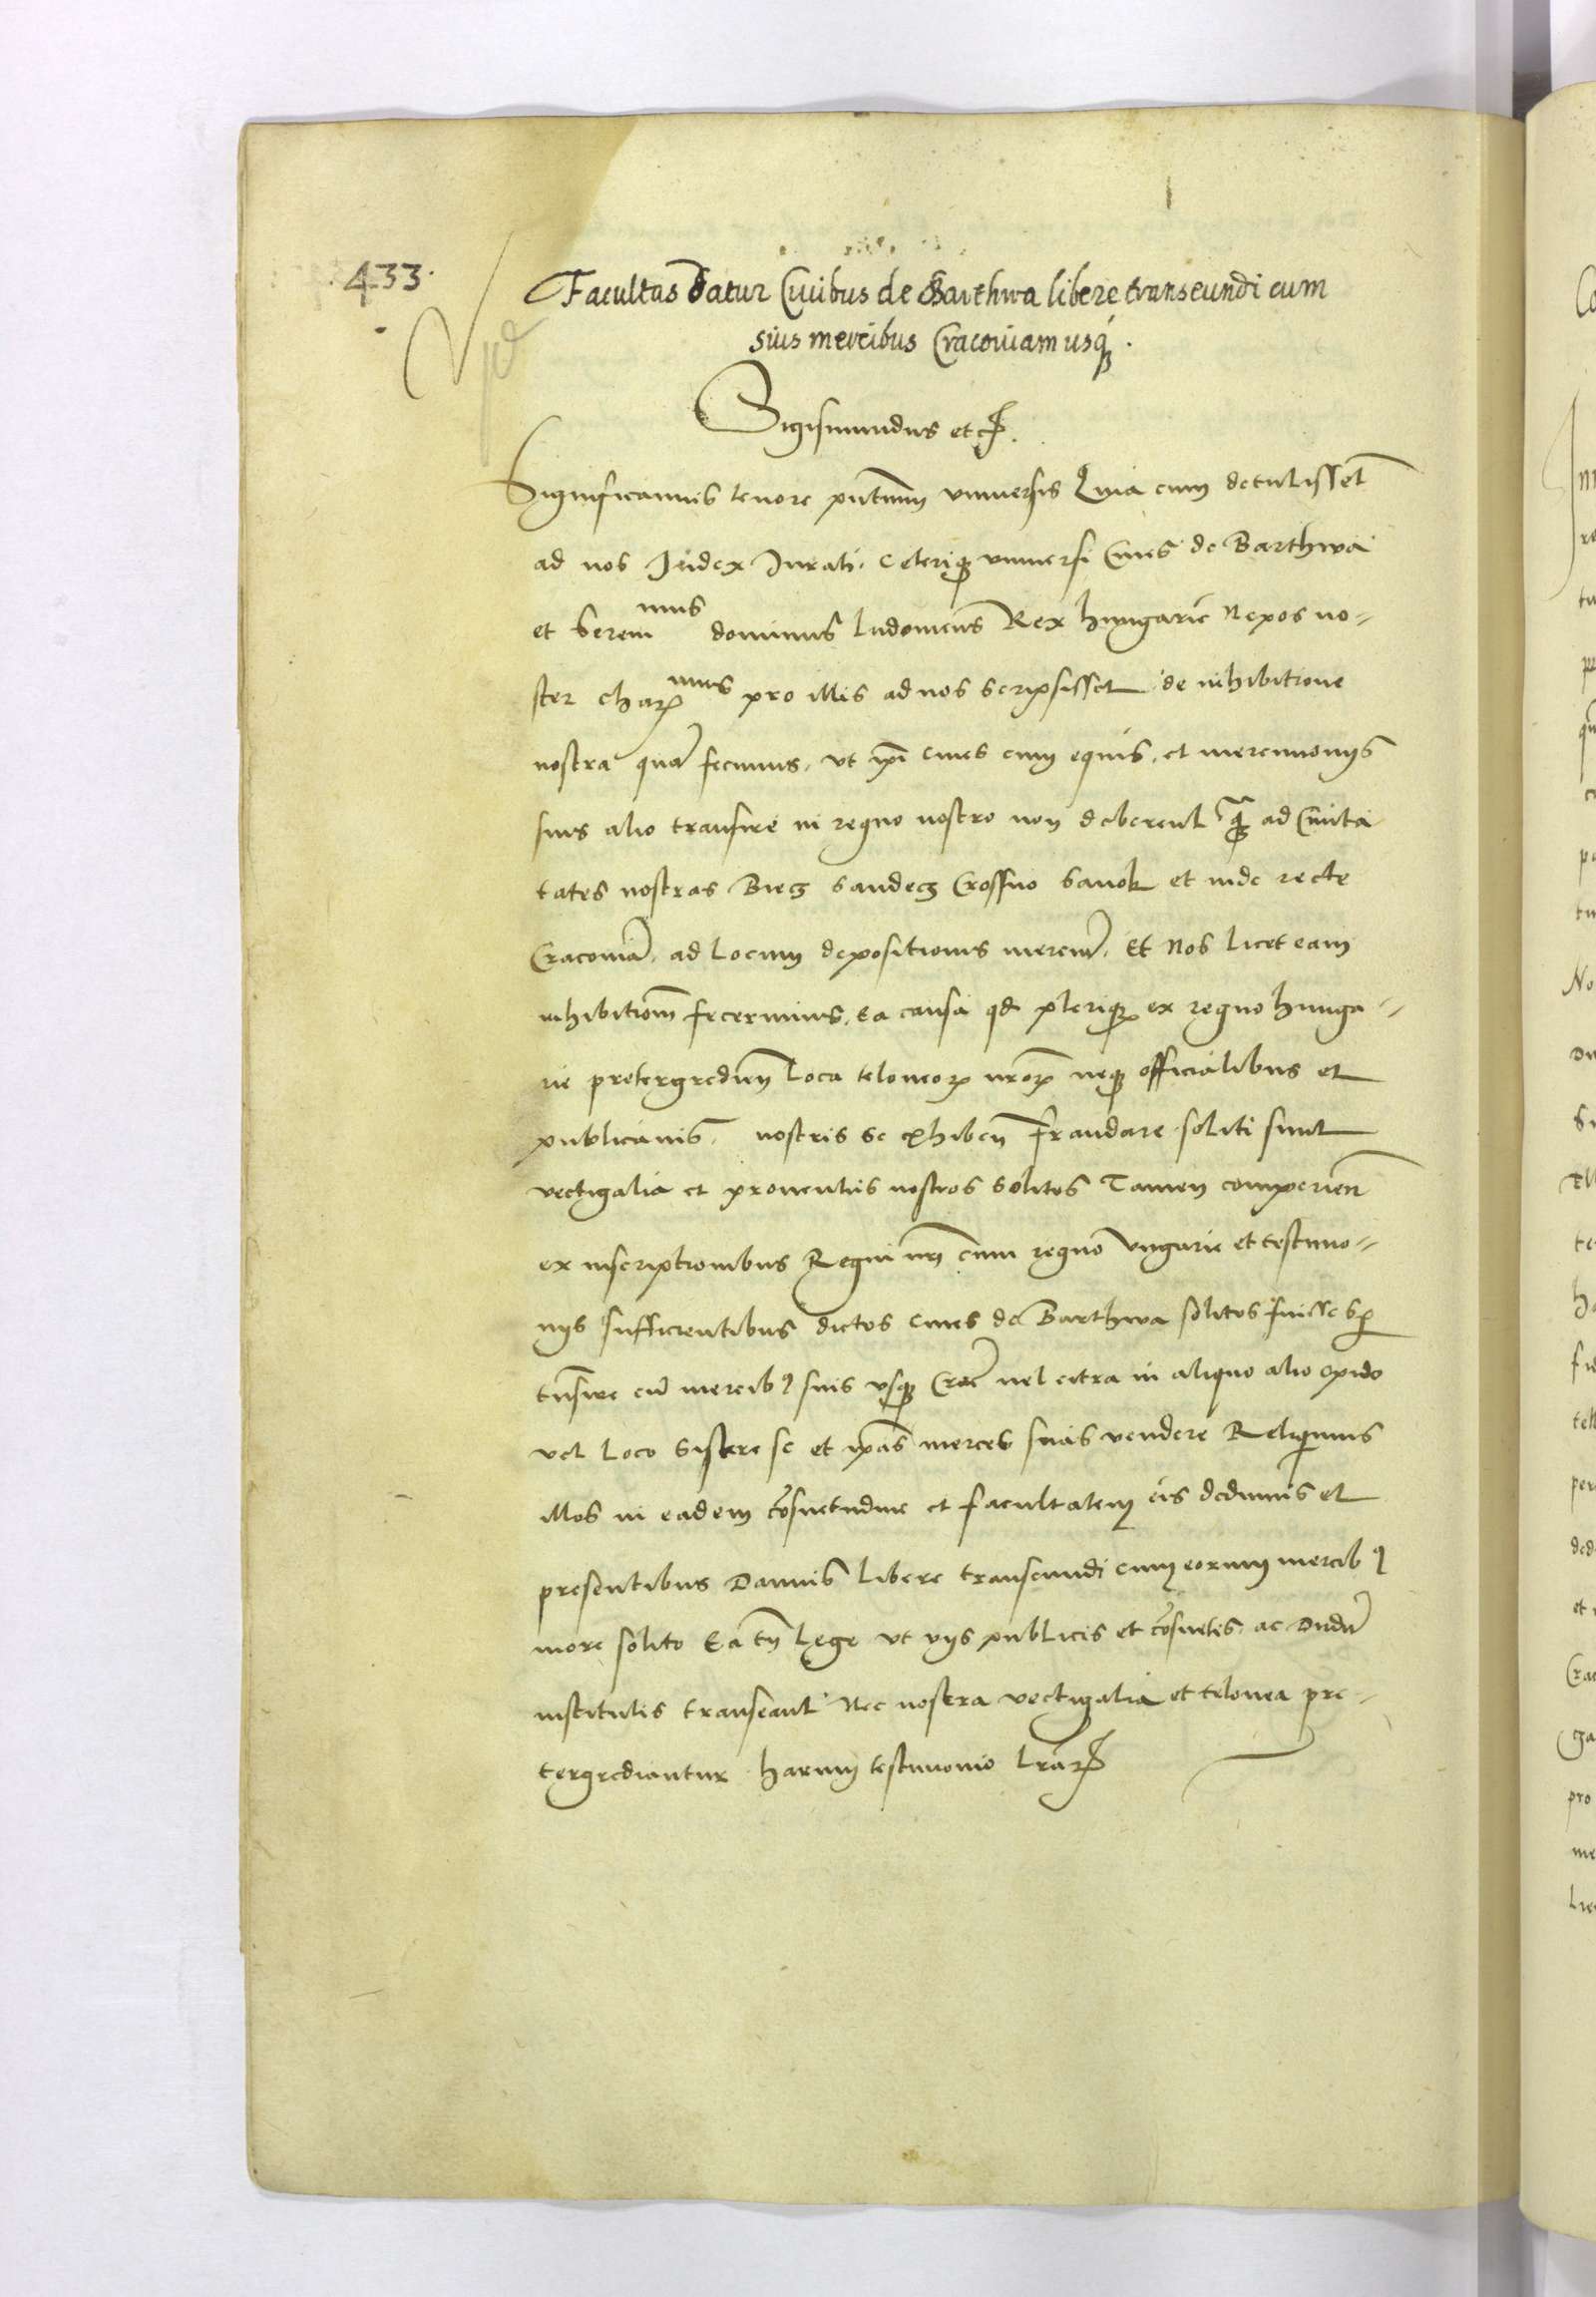 433.
Facultas datur Civibus de Barthwa libere transeundi cum
suis mercibus Cracoviam usq̨ .
Sigismundus etc̃.
Significamus tenore pñtium vniuersis Quia cum detulissent
ad nos Iudex Iurati. ceteriq̨ vniuersi Ciues de Barthwa
et Seren mus dominus ludouicus Rex hungarie Nepos no=
ster char mus pro illis ad nos scripsisset de inhibitione
nostra quã fecimus. vt ipi ciues cum equis. et mercimoniis
suis alio transire in regno nostro non deberent q̃ ad Ciuita
tates nostras Biecz Sandecz Crossno Sanok et inde recte
Cracouiã. ad Locum depositionis merciũ. Et Nos licet eam
inhibitionẽ fecerimus. Ea causa qd pleriq̨ ex regno hunga=
rie pretergredien̄ Loca teloneoꝝ nr̃oꝝ neq̨ officialibus et
publicanis. nostris se exhiben̄ fraudare soliti sunt
vectigalia et prouentus nostros solitos Tamen comperien̄
ex inscriptionibus Regni nr̃i cum regno Vngarie et testimo=
niis sufficientibus dictos ciues de Barthwa solitos fuisse sp̃
trãsire cũ mercibꝰ suis vsq̨ Crac̃ uel citra in aliquo alio opido
vel Loco sistere se et ip̃as merces suas vendere Relinquimus
illos in eadem cõsuetudine et facultatem eis dedimus et
presentibus Damus Libere transeundi cum eorum mercibꝰ
more solito Ea tñ Lege vt viis publicis et cõsuetis ac Dudũ
institutis transeant Nec nostra vectigalia et telonea pre=
tergrediantur. harum testimonio lr̃aꝝ